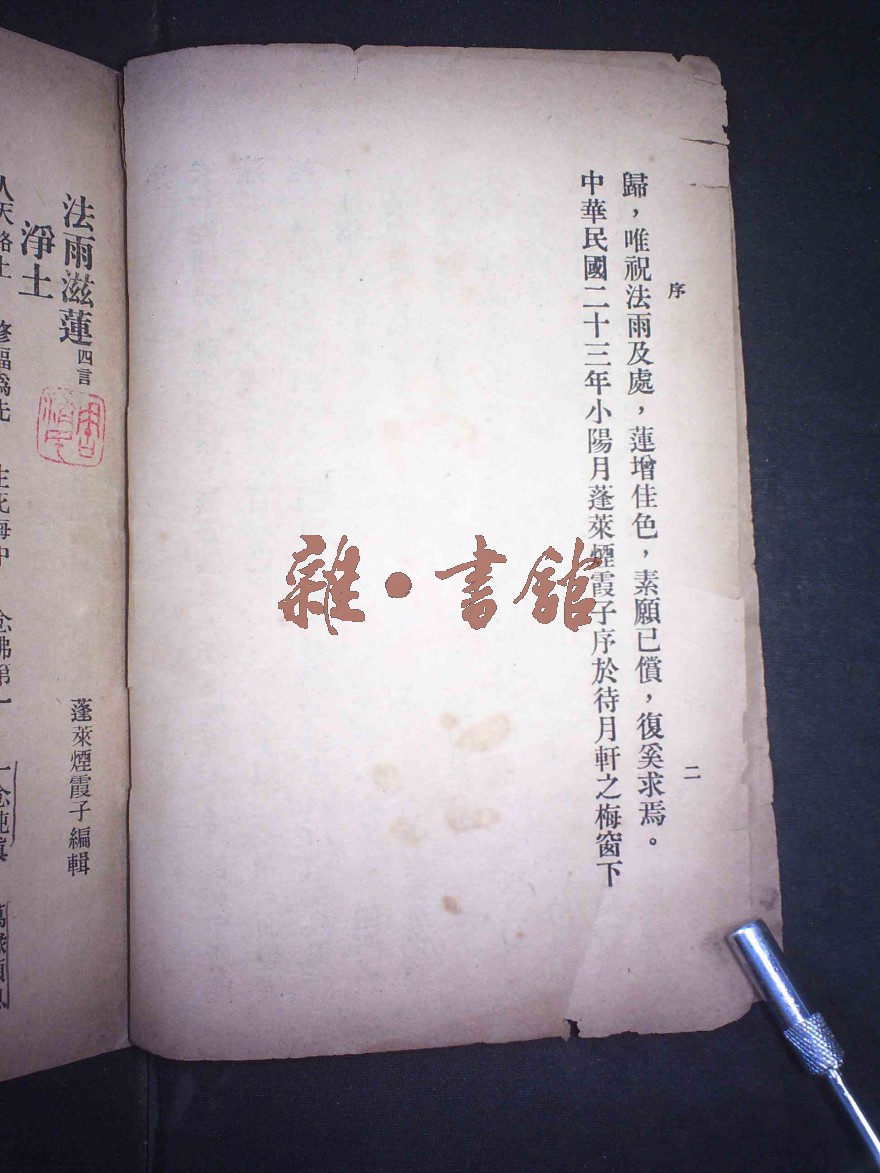 序
二
歸，唯祝法雨及處，蓮增佳色，素願已償，復奚求焉。
中華民國二十三年小陽月蓬萊煙霞子序於待月軒之梅窗下
雜·書館
法雨滋蓮 四言
蓬萊煙霞子編輯
淨土
人天路上 修福爲先 生死海中 念佛第一 一念純眞